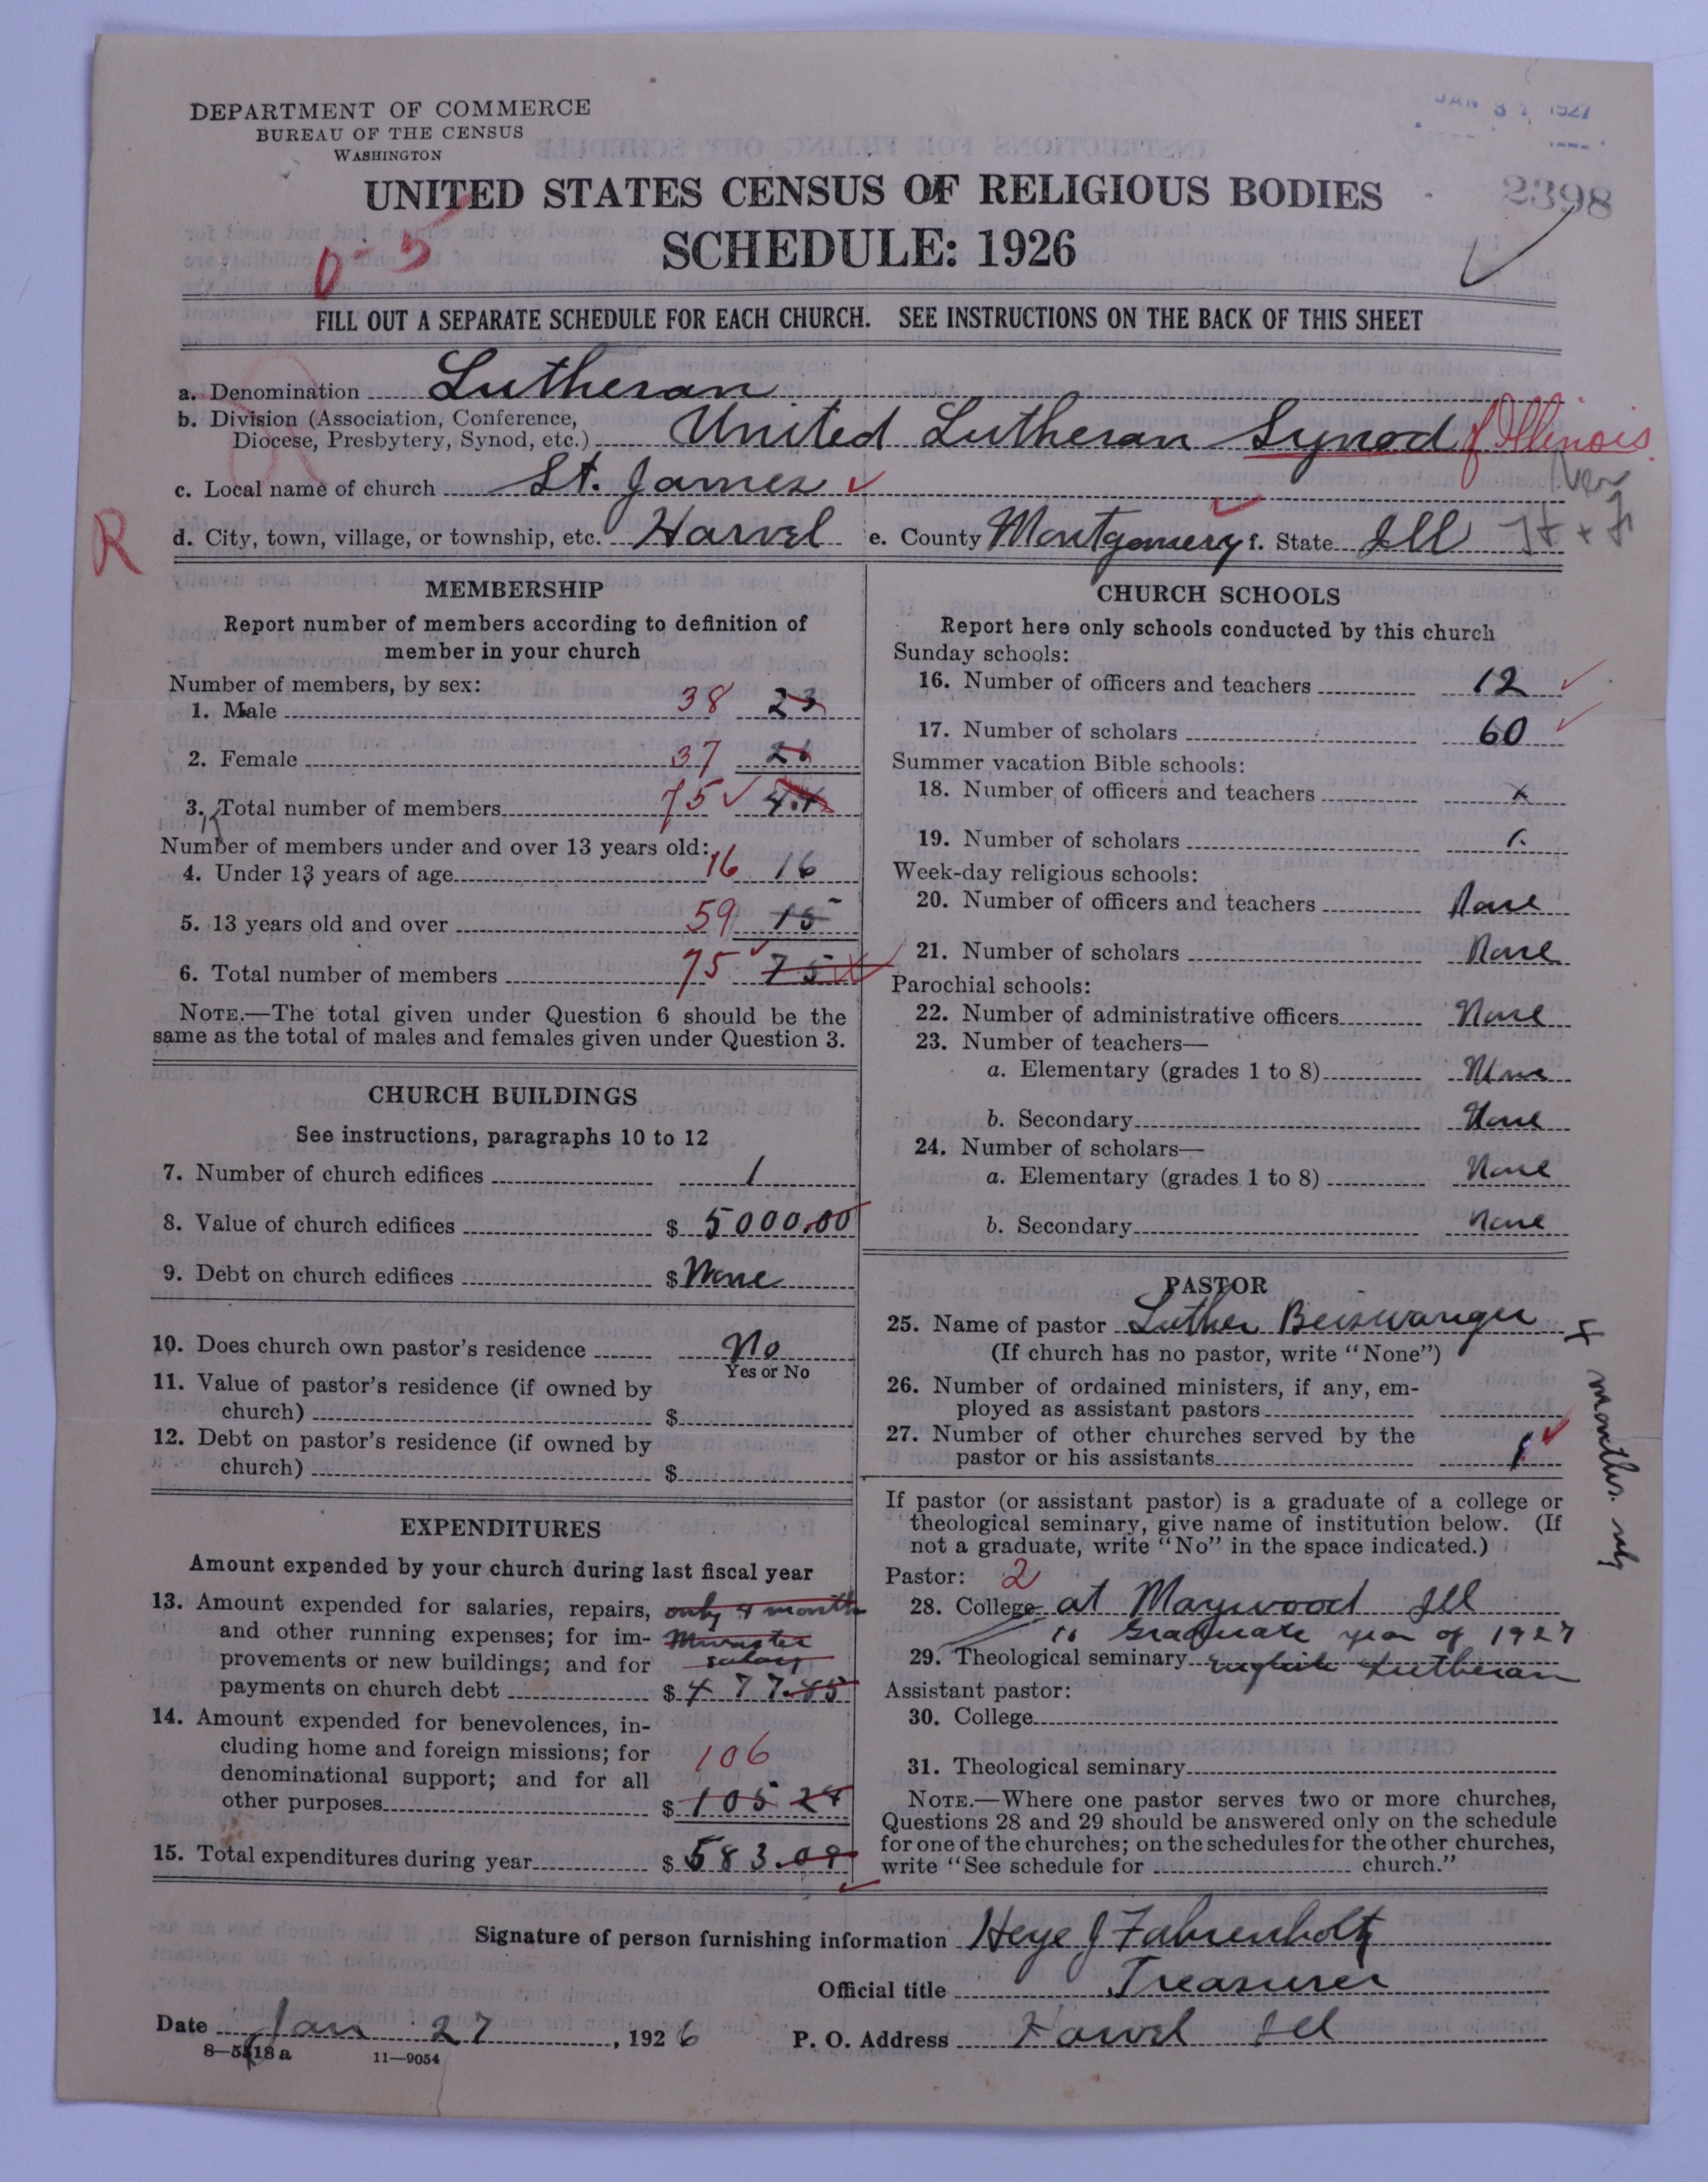 DEPARTMENT OF COMMERCE
BUREAU OF THE CENSUS
WASHINGTON
JAN 31 1927
2398
UNITED STATES CENSUS OF RELIGIOUS BODIES
SCHEDULE: 1926
0-5
FILL OUT A SEPARATE SCHEDULE FOR EACH CHURCH. SEE INSTRUCTIONS ON THE BACK OF THIS SHEET
a. Denomination Lutheran
b. Division (Association, Conference,
Diocese, Presbytery, Synod, etc.) United Lutheran Synod of Illinois.
c. Local name of church St. James
R
d. City, town, village, or township, etc. Harvel e. County Montgomery f. State Ill
MEMBERSHIP
Report number of members according to definition of
member in your church
Number of members, by sex:
1. Male 38 23
2. Female 37 21
3. Total number of members 75 44
Number of members under and over 13 years old:
4. Under 13 years of age 16 16
5. 13 years old and over 59 15
6. Total number of members 75 75
NOTE.—The total given under Question 6 should be the
same as the total of males and females given under Question 3.
CHURCH BUILDINGS
See instructions, paragraphs 10 to 12
7. Number of church edifices 1
8. Value of church edifices $ 5000.00
9. Debt on church edifices $ None
10. Does church own pastor's residence No
Yes or No
11. Value of pastor's residence (if owned by
church) $
12. Debt on pastor's residence (if owned by
church) $
EXPENDITURES
Amount expended by your church during last fiscal year
13. Amount expended for salaries, repairs, only 4 month
and other running expenses; for im- Minister
provements or new buildings; and for salary
payments on church debt $ 477.85
14. Amount expended for benevolences, in-
cluding home and foreign missions; for 106
denominational support; and for all
other purposes $ 105 24
15. Total expenditures during year $ 583.09
CHURCH SCHOOLS
Report here only schools conducted by this church
Sunday schools:
16. Number of officers and teachers 12
17. Number of scholars 60
Summer vacation Bible schools:
18. Number of officers and teachers x
19. Number of scholars
Week-day religious schools:
20. Number of officers and teachers None
21. Number of scholars None
Parochial schools:
22. Number of administrative officers None
23. Number of teachers—
a. Elementary (grades 1 to 8) None
b. Secondary None
24. Number of scholars—
a. Elementary (grades 1 to 8) None
b. Secondary None
PASTOR
25. Name of pastor Luther Beiswanger
(If church has no pastor, write "None")
4 months. only
26. Number of ordained ministers, if any, em-
ployed as assistant pastors
27. Number of other churches served by the
pastor or his assistants 1
If pastor (or assistant pastor) is a graduate of a college or
theological seminary, give name of institution below. (If
not a graduate, write "No" in the space indicated.)
Pastor: 2
28. College at Maywood Ill
to Graduate year of 1927
29. Theological seminary English Lutheran
Assistant pastor:
30. College
31. Theological seminary
NOTE.—Where one pastor serves two or more churches,
Questions 28 and 29 should be answered only on the schedule
for one of the churches; on the schedules for the other churches,
write "See schedule for church."
Signature of person furnishing information Heye J Fahrenholtz
Official title Treasurer
Date Jan 27, 1926 P. O. Address Harvel Ill
8—5518a 11—9054